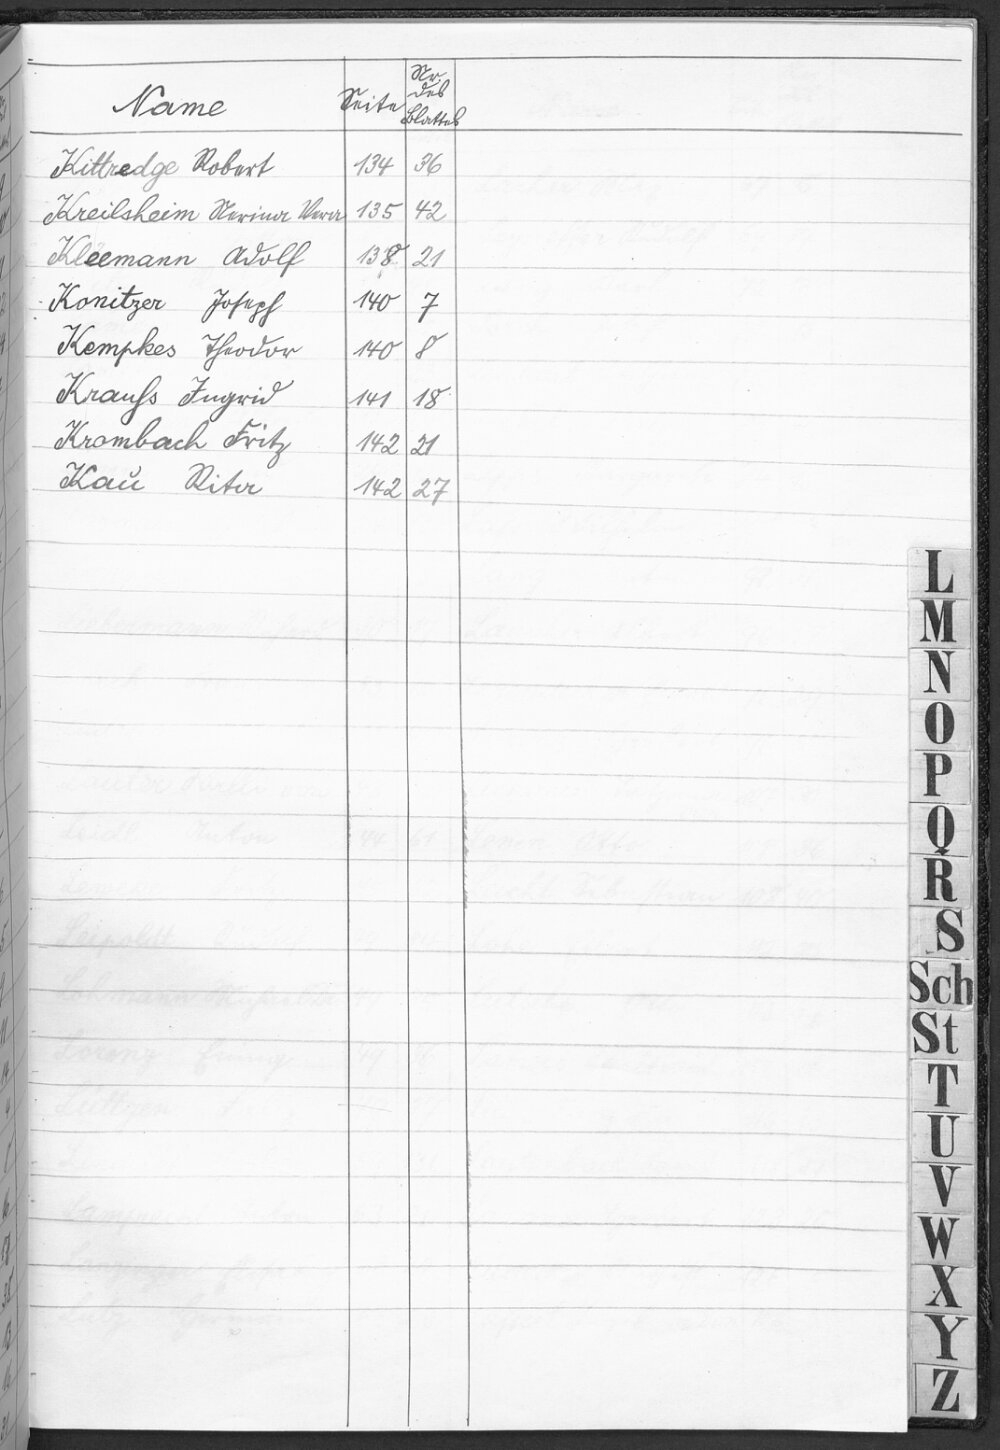 Name Seite Nr. des Blattes
Kittredge Robert 134 36
Kreilsheim Nerina Vera 135 42
Kleemann Adolf 138 21
Konitzer Joseph 140 7
Kempkes Theodor 140 8
Krauss Ingrid 141 18
Krombach Fritz 142 21
Kaŭ Rita 142 27
L
M
N
O
P
Q
R
S
Sch
St
T
U
V
W
X
Y
Z